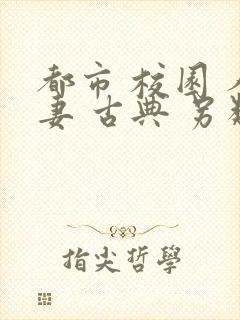 都市 校园
妻 古典 另
指尖哲學